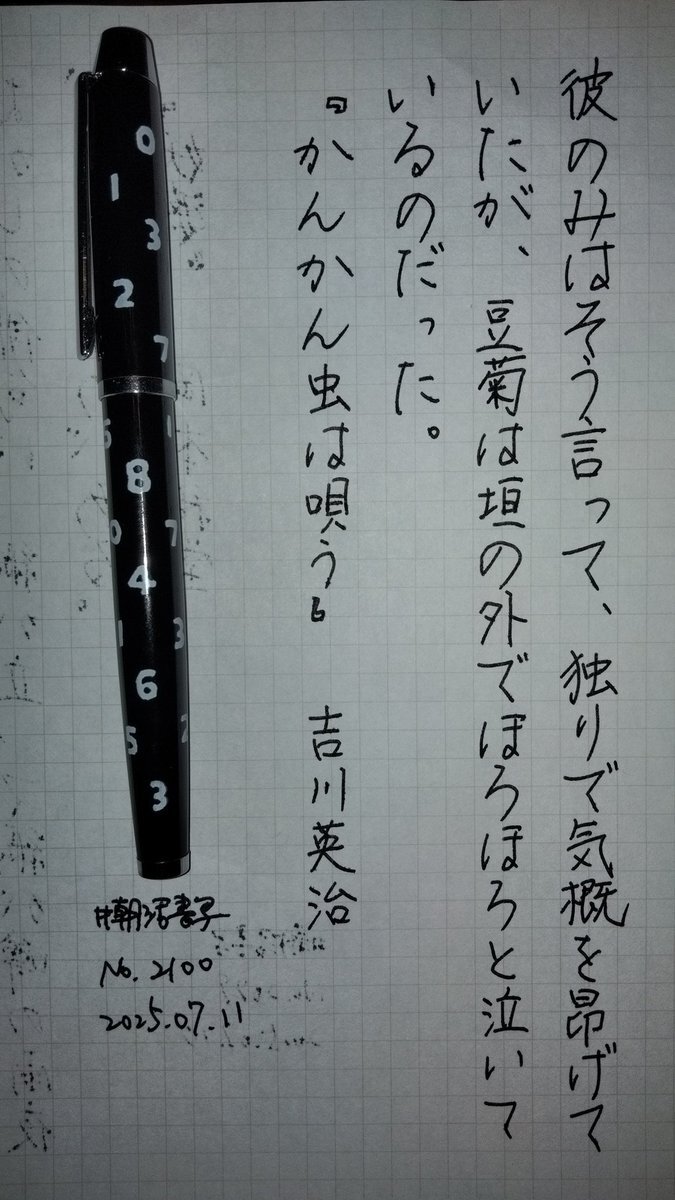 彼のみはそう言って、独りで気概を昂げて
いたが、豆菊は垣の外でほろほろと泣いて
いるのだった。
『かんかん虫は唄う』 吉川英治
0
1
3
2
7
6 1
8
0 7
4
1 3
6
5 2
3
#朝活書写
No.2100
2025.07.11